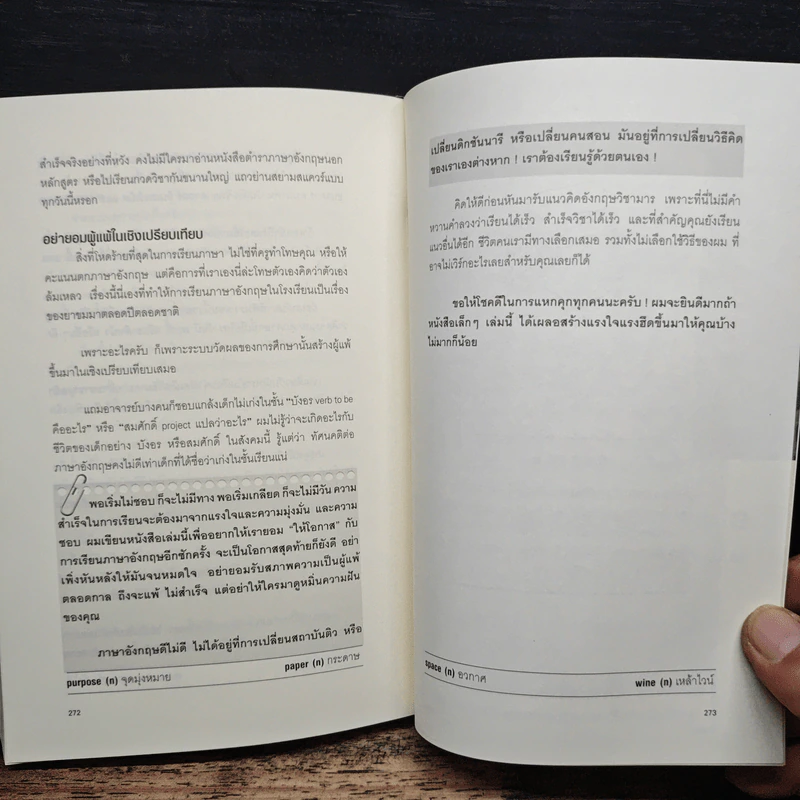 สำเร็จจริงอย่างที่หวัง คงไม่มีใครมาอ่านหนังสือตำราภาษาอังกฤษนอก
หลักสูตร หรือไปเรียนกวดวิชากันขนานใหญ่ แถวย่านสยามสแควร์แบบ
ทุกวันนี้หรอก
อย่ายอมผู้แพ้ในเชิงเปรียบเทียบ
สิ่งที่โหดร้ายที่สุดในการเรียนภาษา ไม่ใช่ที่ครูทำโทษคุณ หรือให้
คะแนนตกภาษาอังกฤษ แต่คือการที่เราเองนี่ละโทษตัวเองคิดว่าตัวเอง
ล้มเหลว เรื่องนี้นี่เองที่ทำให้การเรียนภาษาอังกฤษในโรงเรียนเป็นเรื่อง
ของยาขมมาตลอดปีตลอดชาติ
เพราะอะไรครับ ก็เพราะระบบวัดผลของการศึกษานั้นสร้างผู้แพ้
ขึ้นมาในเชิงเปรียบเทียบเสมอ
แถมอาจารย์บางคนก็ชอบแกล้งเด็กไม่เก่งในชั้น "บังอร verb to be
คืออะไร" หรือ "สมศักดิ์ project แปลว่าอะไร" ผมไม่รู้ว่าจะเกิดอะไรกับ
ชีวิตของเด็กอย่าง บังอร หรือสมศักดิ์ ในสังคมนี้ รู้แต่ว่า ทัศนคติต่อ
ภาษาอังกฤษคงไม่ดีเท่าเด็กที่ได้ชื่อว่าเก่งในชั้นเรียนแน่
พอเริ่มไม่ชอบ ก็จะไม่มีทาง พอเริ่มเกลียด ก็จะไม่มีวัน ความ
สำเร็จในการเรียนจะต้องมาจากแรงใจและความมุ่งมั่น และความ
ชอบ ผมเขียนหนังสือเล่มนี้เพื่ออยากให้เรายอม "ให้โอกาส" กับ
การเรียนภาษาอังกฤษอีกซักครั้ง จะเป็นโอกาสสุดท้ายก็ยังดี อย่า
เพิ่งหันหลังให้มันจนหมดใจ อย่ายอมรับสภาพความเป็นผู้แพ้
ตลอดกาล ถึงจะแพ้ ไม่สำเร็จ แต่อย่าให้ใครมาดูหมิ่นความฝัน
ของคุณ
ภาษาอังกฤษดีไม่ดี ไม่ได้อยู่ที่การเปลี่ยนสถาบันติว หรือ
purpose (n) จุดมุ่งหมาย paper (n) กระดาษ
272
เปลี่ยนดิกชันนารี หรือเปลี่ยนคนสอน มันอยู่ที่การเปลี่ยนวิธีคิด
ของเราเองต่างหาก ! เราต้องเรียนรู้ด้วยตนเอง !
คิดให้ดีก่อนหันมารับแนวคิดอังกฤษวิชามาร เพราะที่นี่ไม่มีคำ
หวานคำลวงว่าเรียนได้เร็ว สำเร็จวิชาได้เร็ว และที่สำคัญคุณยังเรียน
แนวอื่นได้อีก ชีวิตคนเรามีทางเลือกเสมอ รวมทั้งไม่เลือกใช้วิธีของผม ที่
อาจไม่เวิร์กอะไรเลยสำหรับคุณเลยก็ได้
ขอให้โชคดีในการแหกคุกทุกคนนะครับ ! ผมจะยินดีมากถ้า
หนังสือเล็กๆ เล่มนี้ ได้เผลอสร้างแรงใจแรงฮึดขึ้นมาให้คุณบ้าง
ไม่มากก็น้อย
space (n) อวกาศ wine (n) เหล้าไวน์
273